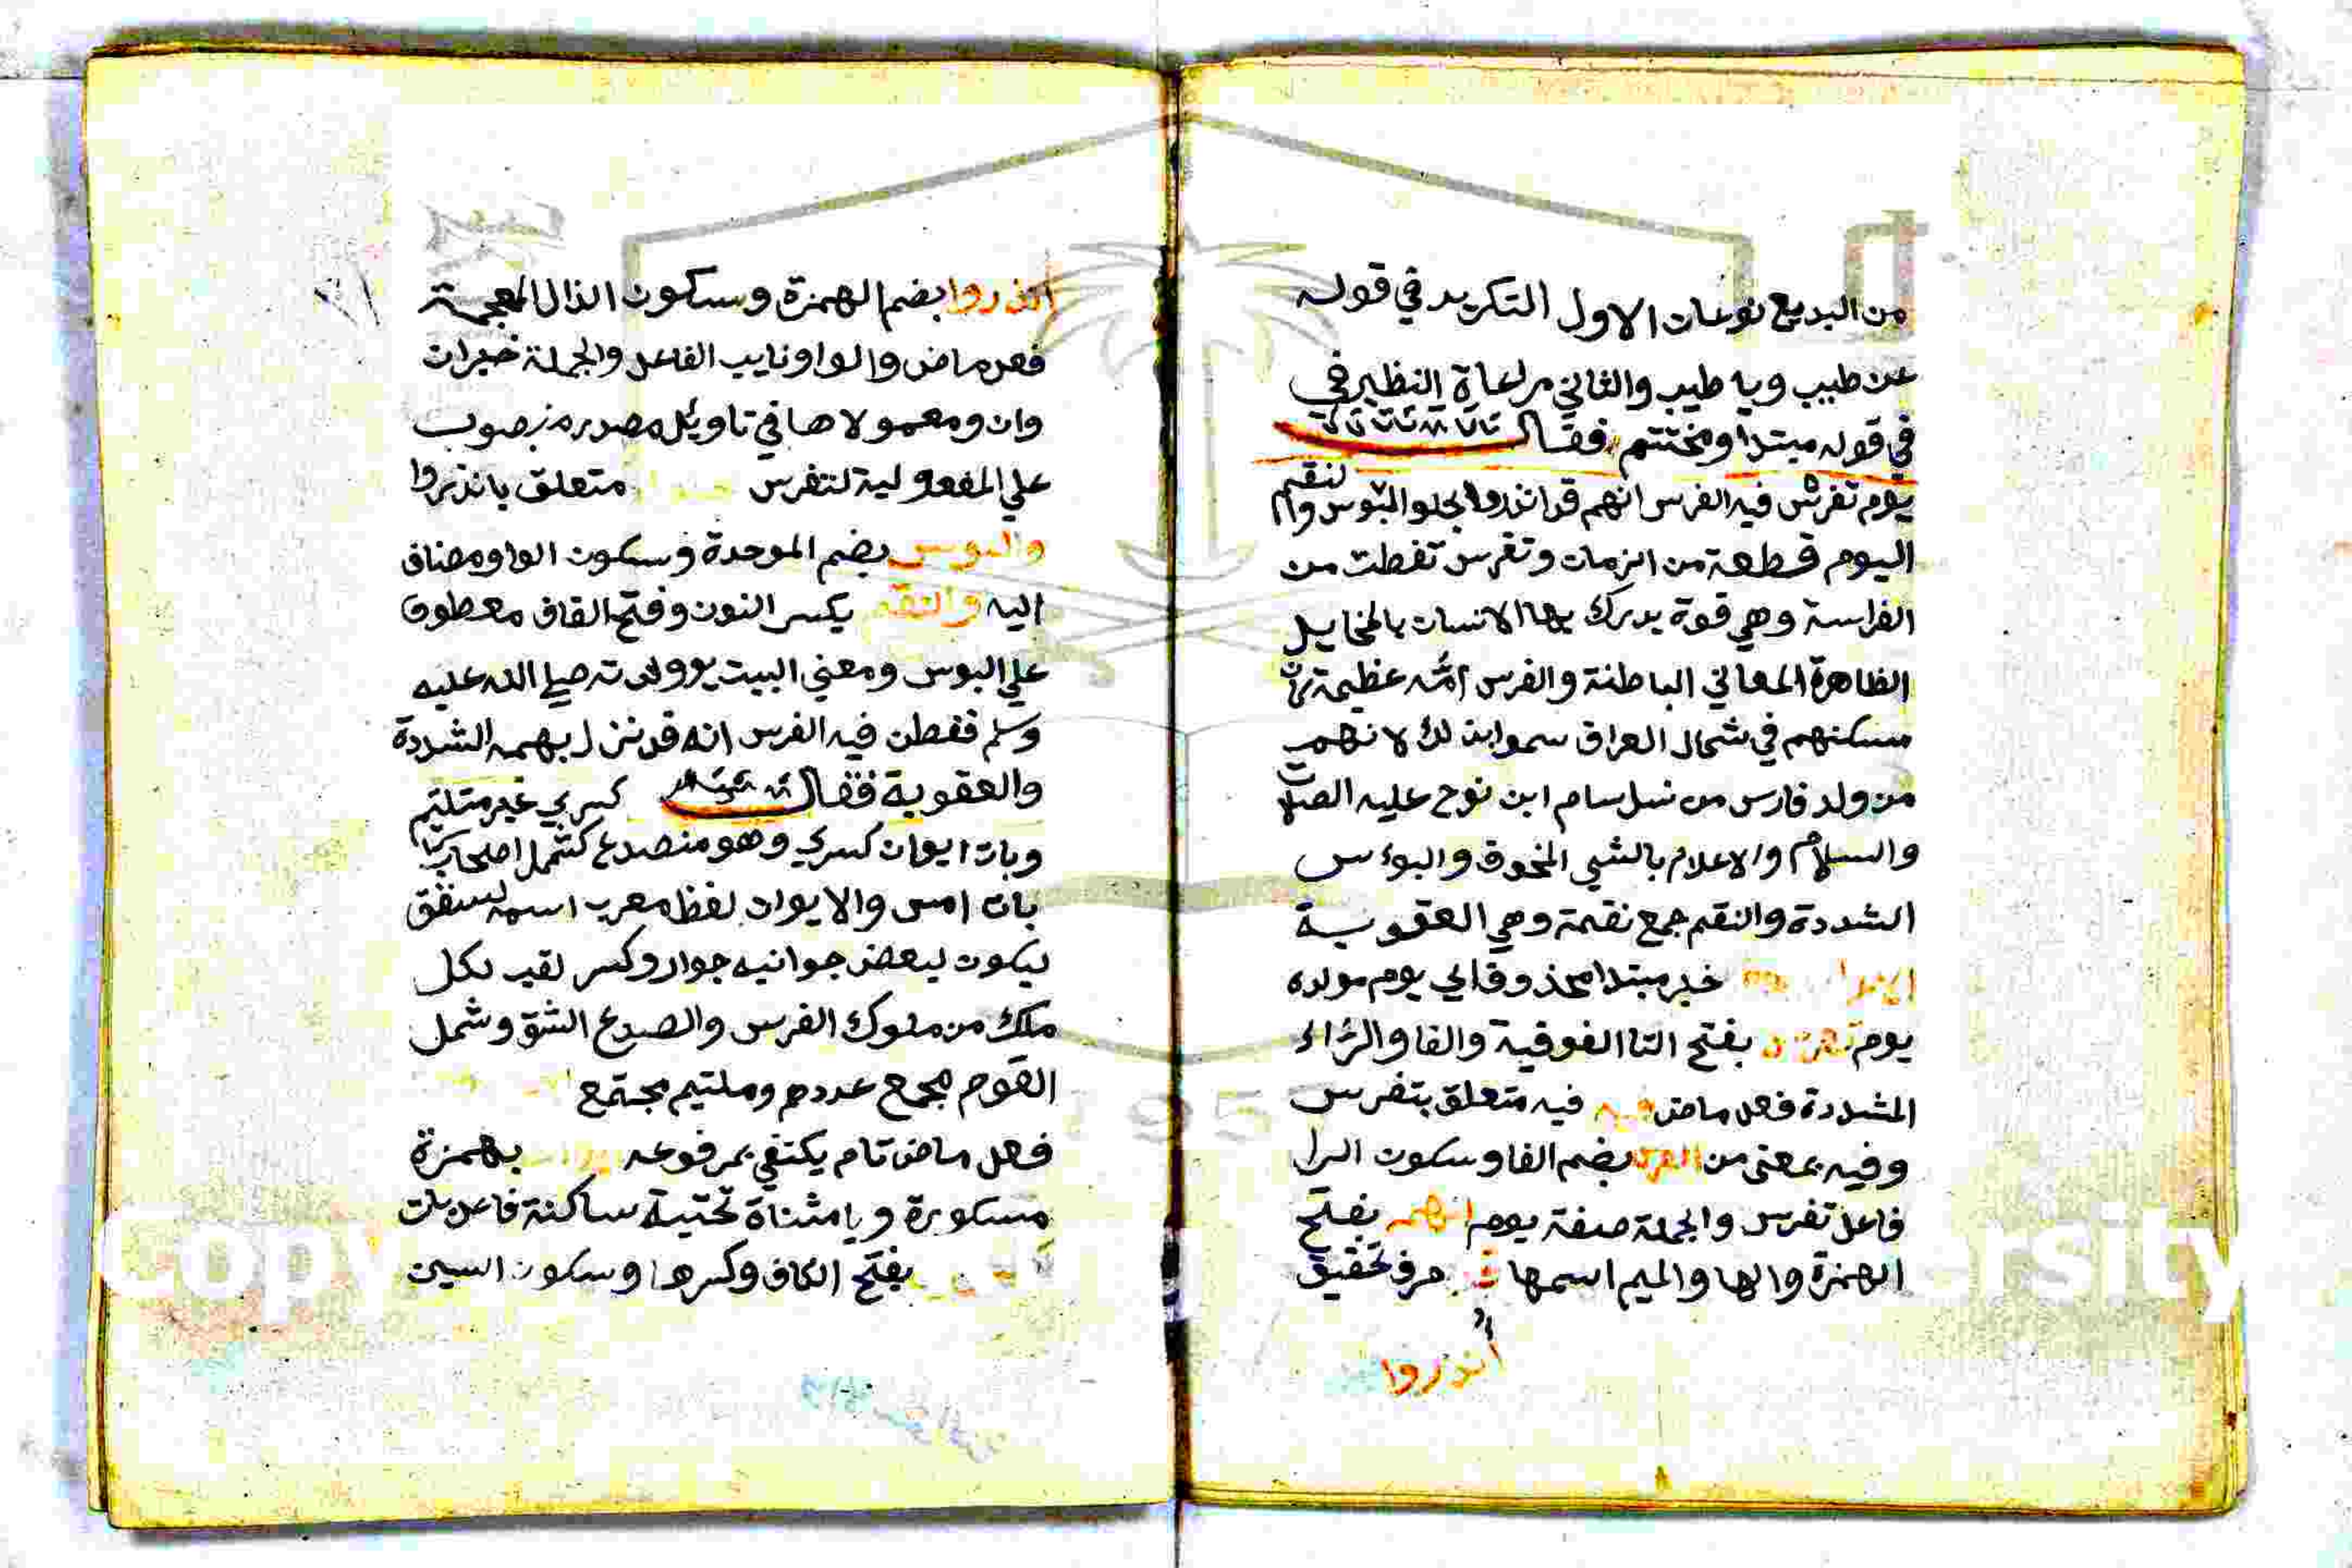 من البديع نوعان الاول التكرير في قوله
عن طيب ويا طيب والثاني مراعاة النظير في
في قوله مبتدا ومختتم فقال
يوم تفرس فيه الفرس انهم قد انذروا بحلو البوس والنقم
اليوم قطعة من الزمان وتفرس تفطت من
الفراسة وهي قوة يدرك بها الانسان بالمخايل
الظاهرة المعاني الباطنة والفرس امة عظيمة كان
مسكنهم في شمال العراق سموا بذلك لانهم
من ولد فارس من نسل سام ابن نوح عليه الصلاة
والسلام والاعلام بالشي المخوف والبوءس
الشددة والنقم جمع نقمة وهي العقوبة
خبر مبتدا محذوف اي يوم مولده
يوم تفرس بفتح التا الفوقية والفا والراء
المشددة فعل ماض فيه فيه متعلق بتفرس
وفيه بمعنى من الفرس بضم الفا وسكون الرا
فاعل تفرس والجملة صفة يوم انهم بفتح
الهمزة والها والميم اسمها قد حرف تحقيق
انذروا
انذروا بضم الهمزة وسكون الذال المعجمة
فعل ماض والواو نايب الفاعل والجملة خبر ان
وان ومعمولاها في تاويل مصدر منصوب
علي المفعولية لتفرس متعلق بانذروا
والبوس بضم الموحدة وسكون الواو مضاف
اليه والنقم بكسر النون وفتح القاف معطوف
علي البوس ومعني البيت يوم ولادته صلي الله عليه
وسلم فقطن فيه الفرس انه قد نزل بهم الشددة
والعقوبة فقال كسري غير ملتيم
وبات ايوان كسري وهو منصدع كشمل اصحاب
بات امس والايوان لفظ معرب اسم لسقق
ليكون لبعض جوانبه جوار وكسر لقب لكل
ملك من ملوك الفرس والصدع الشق وشمل
القوم مجمع عددهم وملتيم مجتمع
فعل ماض تام يكتفي بمرفوعه بهمزة
مسكورة ويا مثناة تحتية ساكنة فاعل بات
بفتح الكاف وكسرها وسكون السين